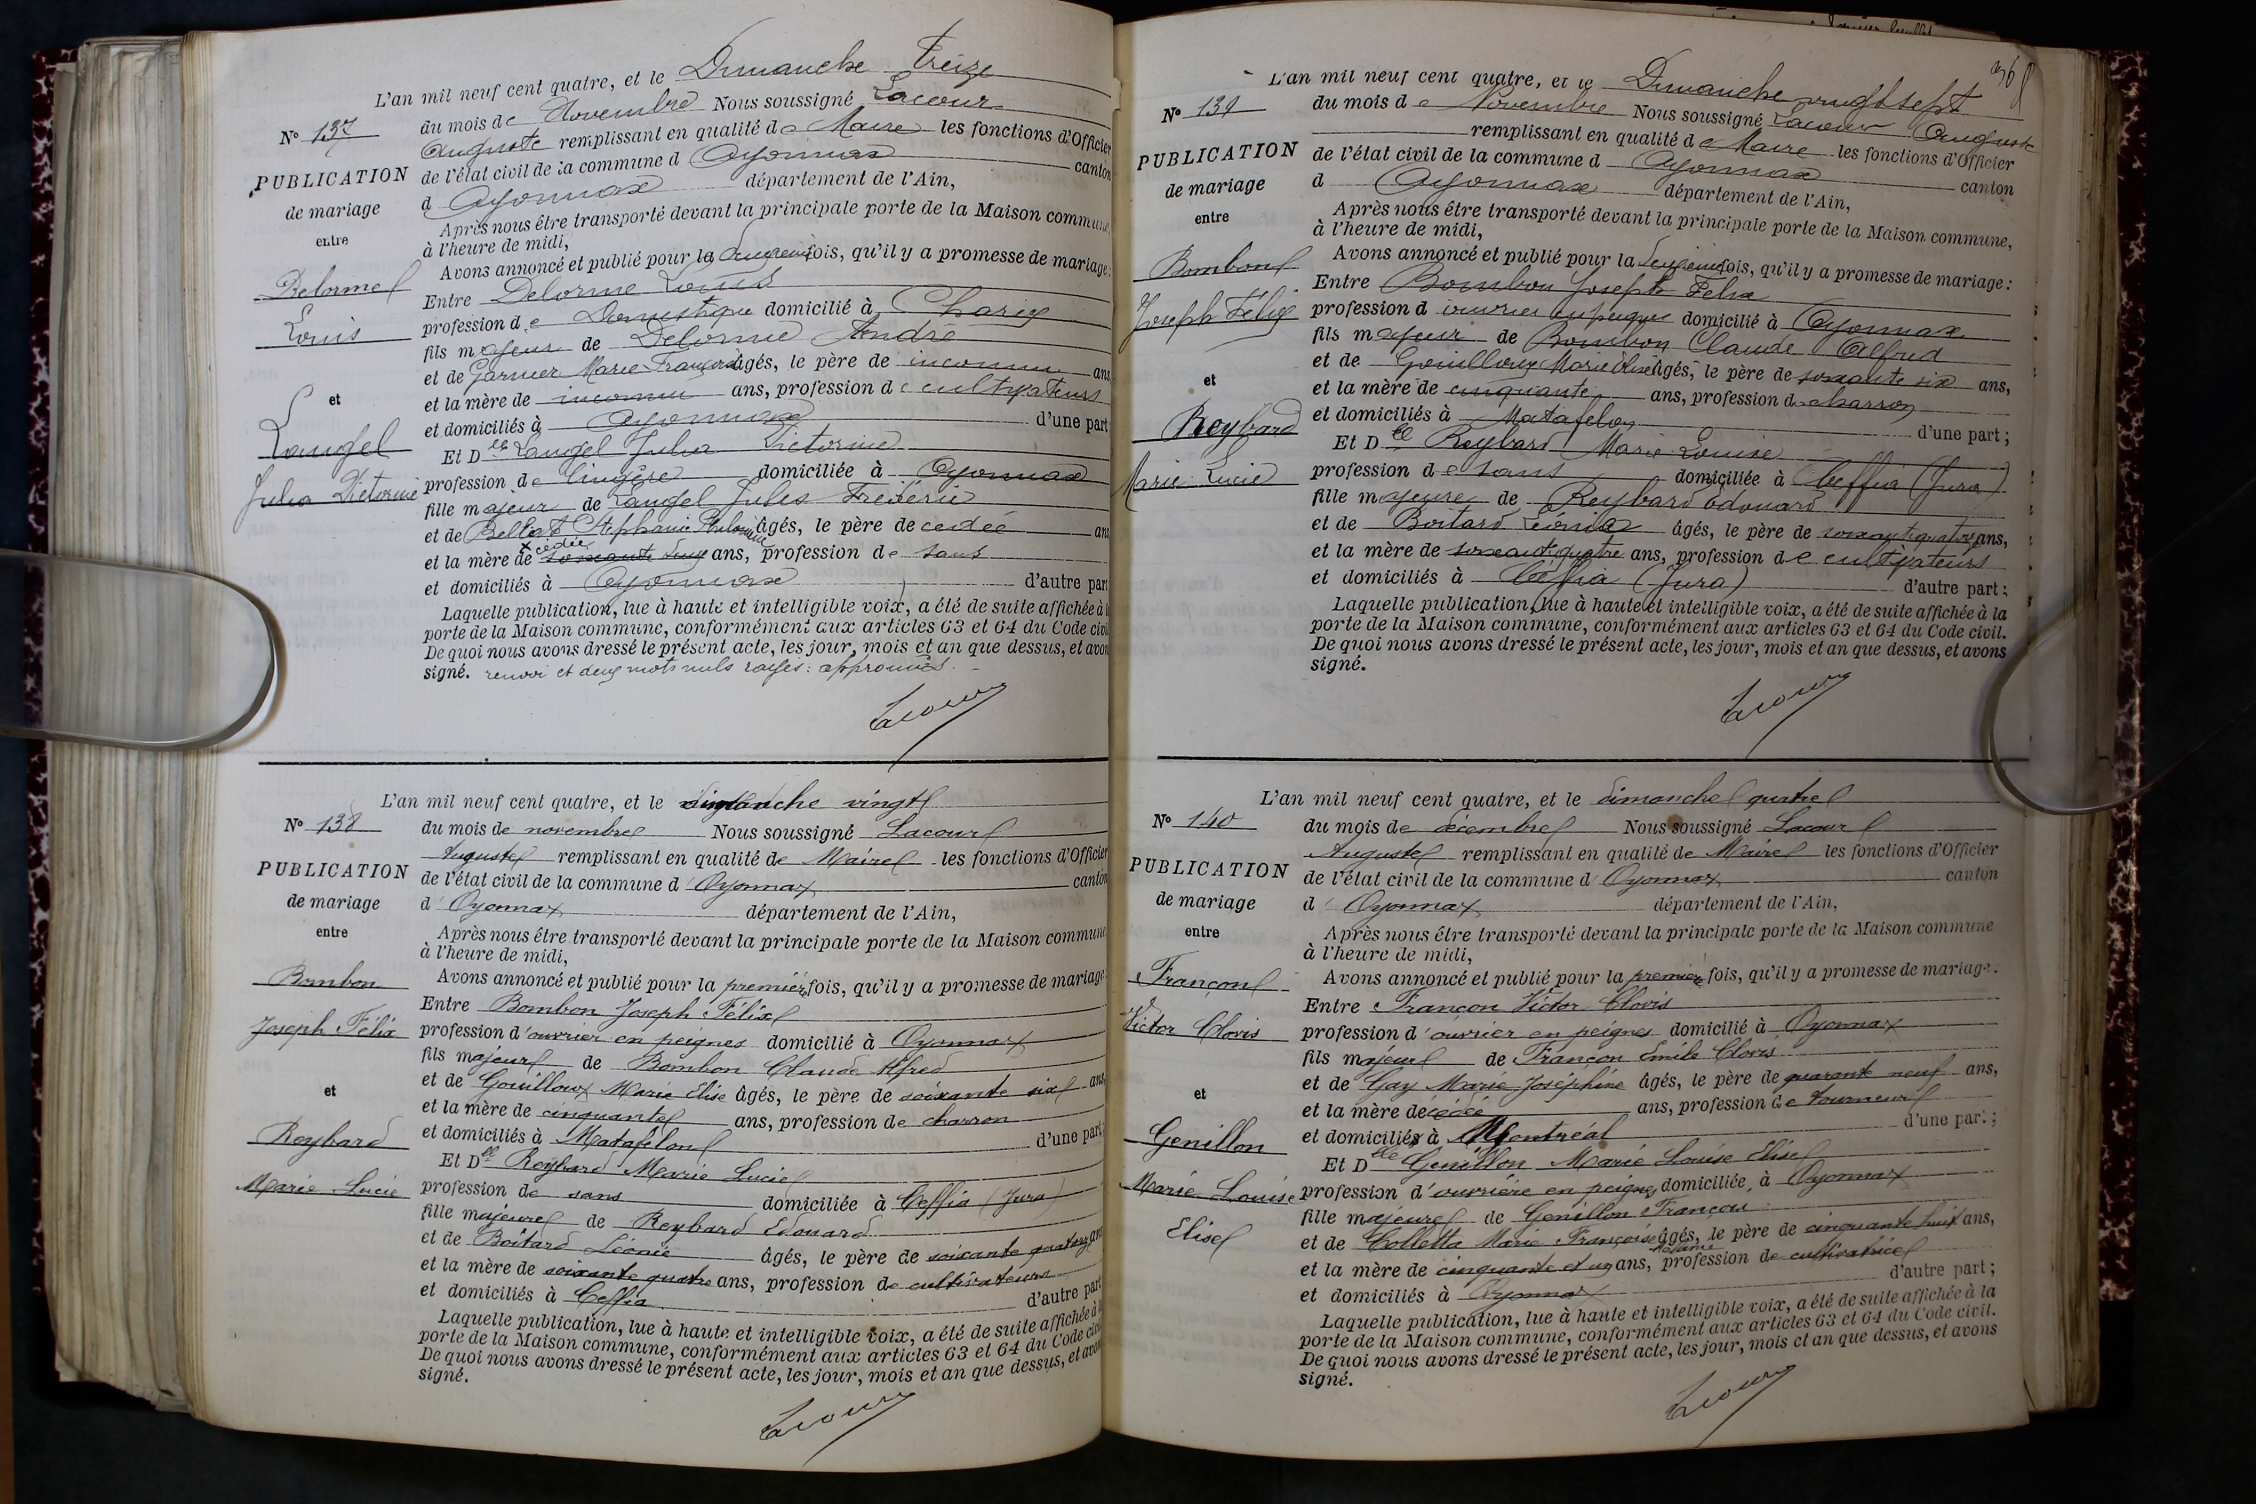 L'an mil neuf cent quatre, et le Dimanche Treize
Nº 137
du mois de Novembre Nous soussigné Lacour
Auguste remplissant en qualité de Maire les fonctions d'Officier
PUBLICATION
de l'état civil de la commune d Oyonnax canton
de mariage
d Oyonnax département de l'Ain,
entre
Après nous être transporté devant la principale porte de la Maison commune,
à l'heure de midi,
Avons annoncé et publié pour la fois, qu'il y a promesse de mariage:
Delorme
Entre Delorme Louis
Louis
profession de Domestique domicilié à Charix
fils majeur de Delorme André
et de Garnier Marie Françoise âgés, le père de inconnu ans
et
et la mère de inconnu ans, profession de cultivateurs
et domiciliés à Oyonnax d'une part
Laugel
Et Dlle Laugel Julia Victorine
Julia Victorine
profession de lingère domiciliée à Oyonnax
fille majeur de Laugel Jules Frédéric
et de Stéphanie Philomène âgés, le père de cedée ans
et la mère de × cedée soixante ans, profession de sans
et domiciliés à Oyonnax d'autre part
Laquelle publication, lue à haute et intelligible voix, a été de suite affichée à la
porte de la Maison commune, conformément aux articles 63 et 64 du Code civil
De quoi nous avons dressé le présent acte, les jour, mois et an que dessus, et avons
signé. renvoi et deux mots nuls rayés: approuvés.
Lacour
L'an mil neuf cent quatre, et le dimanche vingt
Nº 138
du mois de novembre Nous soussigné Lacour
Auguste remplissant en qualité de Maire les fonctions d'Officier
PUBLICATION
de l'état civil de la commune d'Oyonnax canton
de mariage
d'Oyonnax département de l'Ain,
entre
Après nous être transporté devant la principale porte de la Maison commune
à l'heure de midi,
Bombon
Avons annoncé et publié pour la première fois, qu'il y a promesse de mariage:
Entre Bombon Joseph Félix
Joseph Félix
profession d'ouvrier en peignes domicilié à Oyonnax
fils majeur de Bombon Claude Alfred
et
et de Gouilloux Marie Elise âgés, le père de soixante six ans,
et la mère de cinquante ans, profession de charron
Reybard
et domiciliés à Matafelon d'une part
Et Dlle Reybard Marie Lucie
Marie Lucie
profession de sans domiciliée à Ceffia (Jura)
fille majeure de Reybard Edouard
et de Boitard Léonie âgés, le père de soixante quatorze ans
et la mère de soixante quatre ans, profession de cultivateurs
et domiciliés à Ceffia d'autre part
Laquelle publication, lue à haute et intelligible voix, a été de suite affichée à la
porte de la Maison commune, conformément aux articles 63 et 64 du Code civil
De quoi nous avons dressé le présent acte, les jour, mois et an que dessus, et avons
signé.
Lacour
368
L'an mil neuf cent quatre, et le Dimanche vingt sept
Nº 139
du mois de Novembre Nous soussigné Lacour Auguste
remplissant en qualité de Maire les fonctions d'Officier
PUBLICATION
de l'état civil de la commune d Oyonnax canton
de mariage
d Oyonnax département de l'Ain,
entre
Après nous être transporté devant la principale porte de la Maison commune,
à l'heure de midi,
Bombon
Avons annoncé et publié pour la fois, qu'il y a promesse de mariage:
Entre Bombon Joseph Felix
Joseph Félix
profession d ouvrier en peignes domicilié à Oyonnax
fils majeur de Bombon Claude Alfred
et
et de Gouilloux Marie Elise âgés, le père de soixante six ans,
et la mère de cinquante ans, profession de charron
Reybard
et domiciliés à Matafelon d'une part;
Et Dlle Reybard Marie Louise
Marie Lucie
profession de sans domiciliée à Ceffia (Jura)
fille majeure de Reybard Edouard
et de Boitard Léonie âgés, le père de soixante quatorze ans,
et la mère de soixante quatre ans, profession de cultivateurs
et domiciliés à Ceffia (Jura) d'autre part;
Laquelle publication, lue à haute et intelligible voix, a été de suite affichée à la
porte de la Maison commune, conformément aux articles 63 et 64 du Code civil.
De quoi nous avons dressé le présent acte, les jour, mois et an que dessus, et avons
signé.
Lacour
L'an mil neuf cent quatre, et le dimanche quatre
Nº 140
du mois de décembre Nous soussigné Lacour
Auguste remplissant en qualité de Maire les fonctions d'Officier
PUBLICATION
de l'état civil de la commune d'Oyonnax canton
de mariage
d'Oyonnax département de l'Ain,
entre
Après nous être transporté devant la principale porte de la Maison commune
à l'heure de midi,
Françon
Avons annoncé et publié pour la première fois, qu'il y a promesse de mariage.
Entre Françon Victor Clovis
Victor Clovis
profession d'ouvrier en peignes domicilié à Oyonnax
fils majeur de Françon Emile Clovis
et
et de Gay Marie Joséphine âgés, le père de quarante neuf ans,
et la mère décédée ans, profession de tourneur
Genillon
et domiciliés à Montréal d'une part;
Et Dlle Genillon Marie Louise Elise
Marie Louise
profession d'ouvrière en peignes domiciliée à Oyonnax
Elise
fille majeure de Genillon François
et de Colletta Marie Françoise âgés, le père de cinquante huit ans,
et la mère de cinquante et un ans, profession de cultivatrice
et domiciliés à Oyonnax d'autre part;
Laquelle publication, lue à haute et intelligible voix, a été de suite affichée à la
porte de la Maison commune, conformément aux articles 63 et 64 du Code civil.
De quoi nous avons dressé le présent acte, les jour, mois et an que dessus, et avons
signé.
Lacour